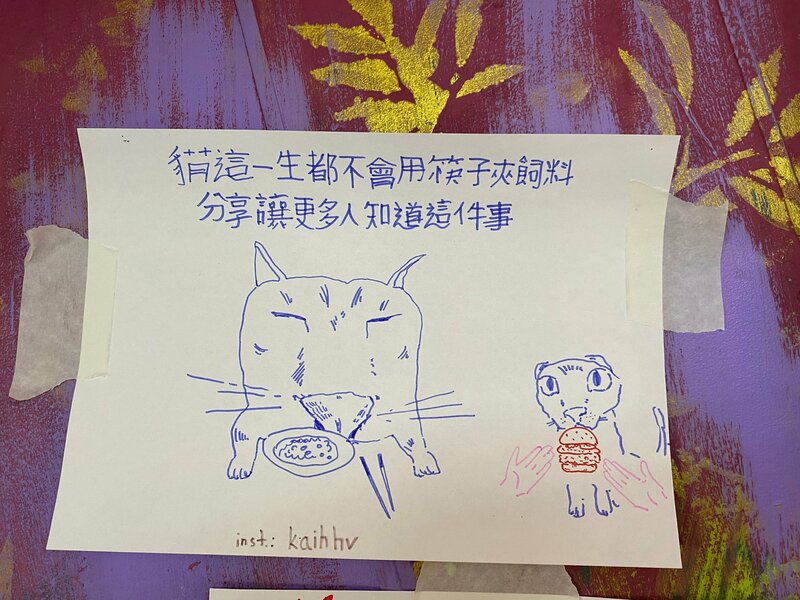 貓這一生都不會用筷子夾飼料
分享讓更多人知道這件事
inst.: kaihhv